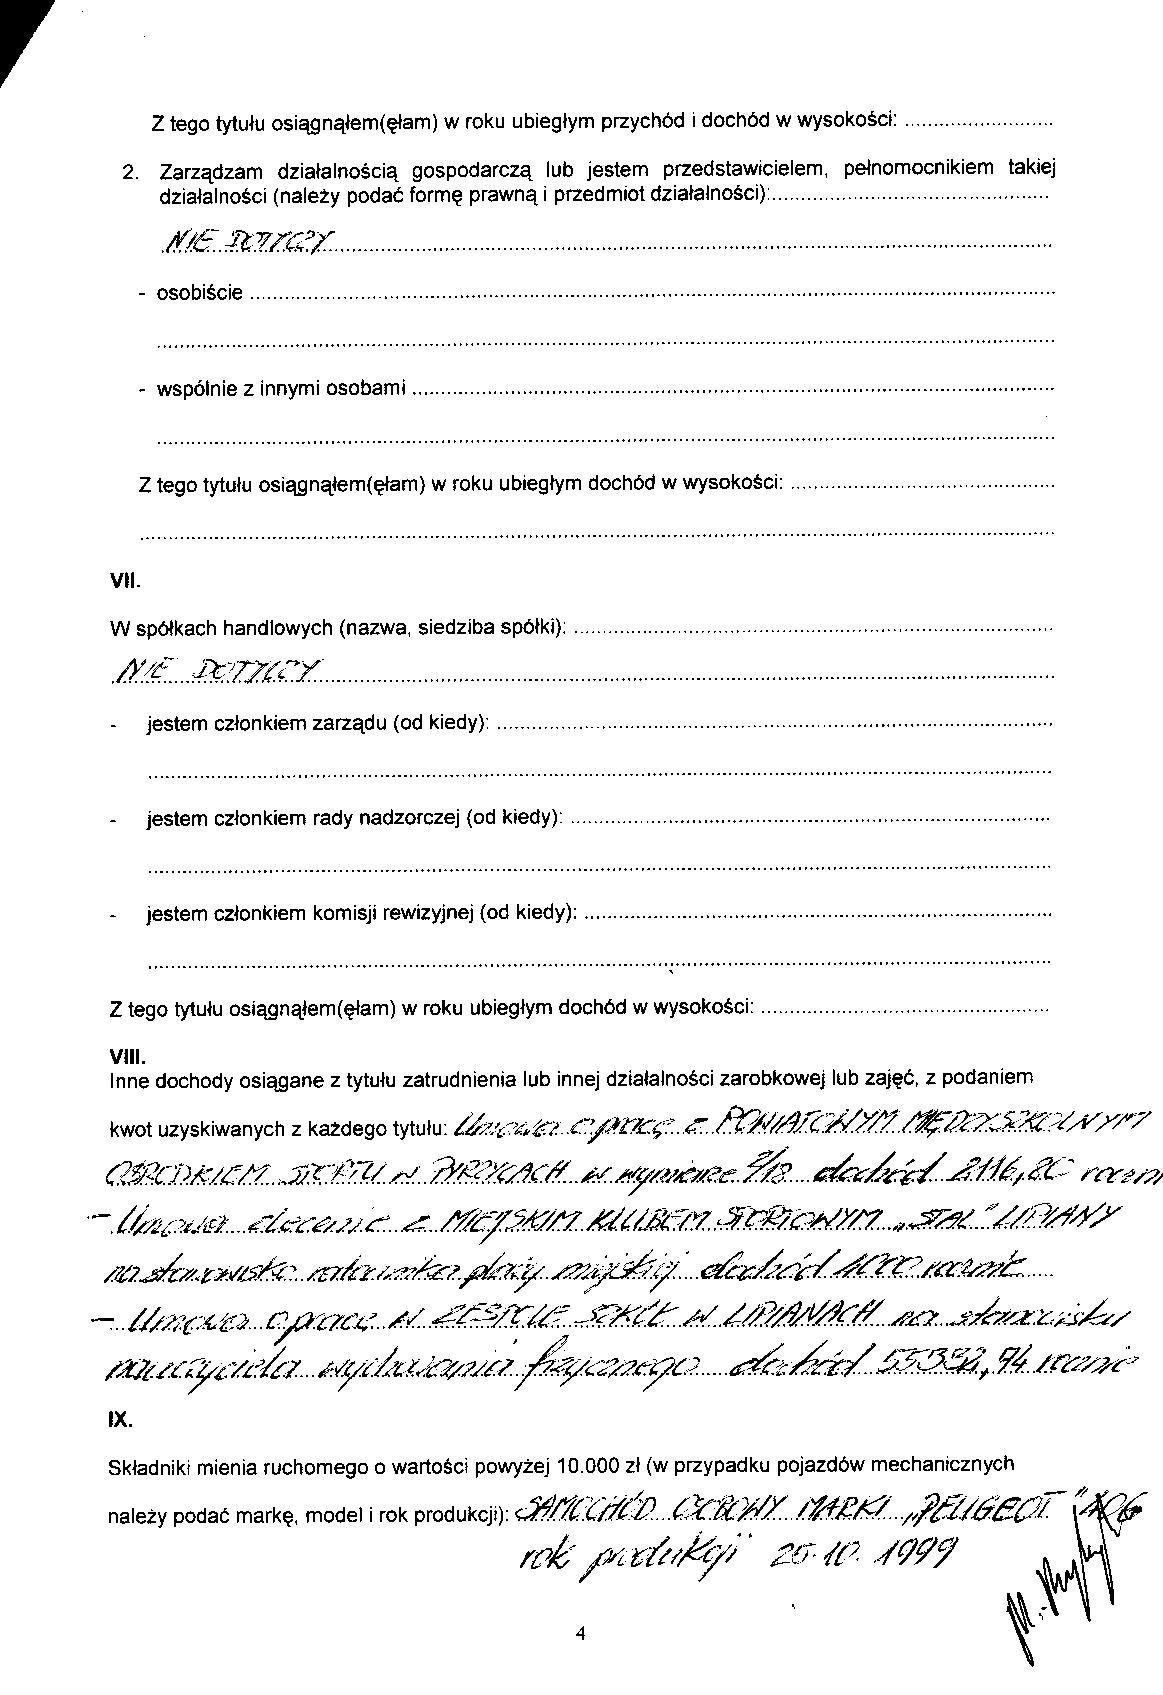 Z tego tytułu osiągnąłem(ęłam) w roku ubiegłym przychód i dochód w wysokości: ..........................
2. Zarządzam działalnością gospodarczą lub jestem przedstawicielem, pełnomocnikiem takiej
działalności (należy podać formę prawną i przedmiot działalności):................................................
NIE DOTYCZY
- osobiście ................................................
- wspólnie z innymi osobami ................................................
Z tego tytułu osiągnąłem(ęłam) w roku ubiegłym dochód w wysokości: ................................................
VII.
W spółkach handlowych (nazwa, siedziba spółki): ................................................
NIE DOTYCZY
- jestem członkiem zarządu (od kiedy): ................................................
- jestem członkiem rady nadzorczej (od kiedy): ................................................
- jestem członkiem komisji rewizyjnej (od kiedy): ................................................
Z tego tytułu osiągnąłem(ęłam) w roku ubiegłym dochód w wysokości: ................................................
VIII.
Inne dochody osiągane z tytułu zatrudnienia lub innej działalności zarobkowej lub zajęć, z podaniem
kwot uzyskiwanych z każdego tytułu: Umowa o pracę z POWIATOWYM MIĘDZYSZKOLNYM
OŚRODKIEM SPORTU W PYRZYCACH w wymiarze dochód 2116,80
- Umowa zlecenie z MIEJSKIM KLUBEM SPORTOWYM „STAL" LIPIANY
na stanowisko ratownika plaży miejskiej dochód 4000 rocznie
- Umowa o pracę W ZESPOLE SZKÓŁ W LIPIANACH na stanowisku
nauczyciela wychowania fizycznego dochód 55382,94 rocznie
IX.
Składniki mienia ruchomego o wartości powyżej 10.000 zł (w przypadku pojazdów mechanicznych
należy podać markę, model i rok produkcji): SAMOCHÓD OSOBOWY MARKI „PEUGEOT" 406
rok produkcji 20.10.1999
4